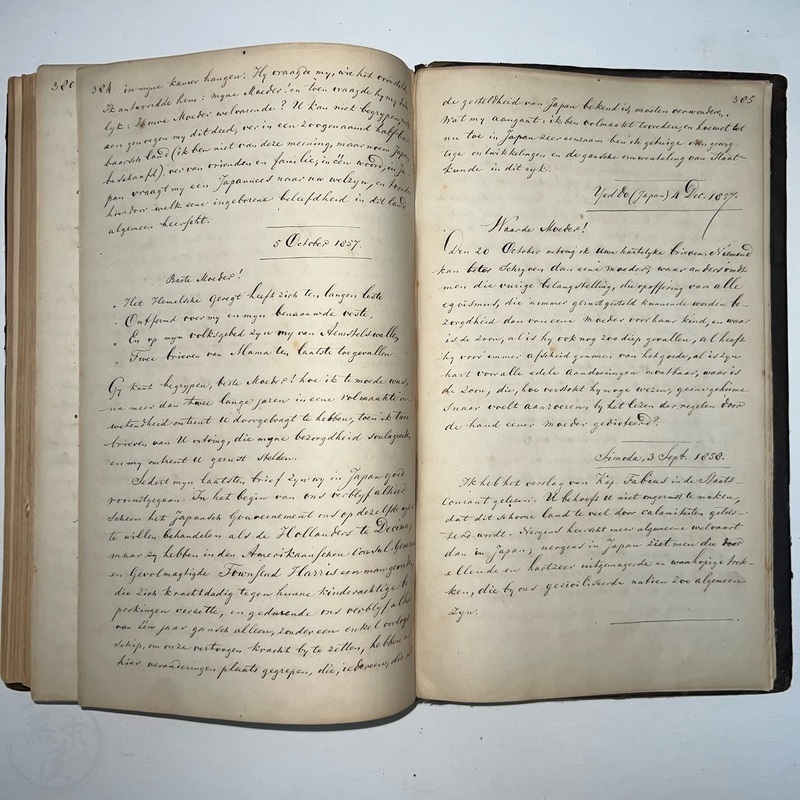 380
384
in myne kamer hangen. Hy vraagde my, wie het voorstelde
Ik antwoordde hem: myne Moeder! en toen vraagde hy my
lyk: Is uwe Moeder welvarende? U kan niet begrypen
een genoegen my dit deed, ver in een zoogenaamd half bar-
baarsch land (ik ben niet van deze meening, maar noem Japan
beschaafd), ver van vrienden en familie, in één woord, in Ja-
pan vraagt my een Japannees naar uw welzyn, en
hierdoor welk eene ingeborene beleefdheid in dit land
algemeen heerscht.
5 October 1857.
Beste Moeder!
Het Hemelsche geregt heeft zich ten langen leste
Ontfermd over my en myn benaauwde veste,
En op myn volksgebed zyn my van Aemstels wallen
Twee brieven van Mama ten laatste toegevallen.
Gy kunt begrypen, beste Moeder! hoe ik te moede was,
na meer dan twee lange jaren in eene volmaakte on-
wetendheid omtrent U doorgebragt te hebben, toen ik twee
brieven van U ontving, die myne bezorgdheid
en my omtrent U gerust stelden.
Sedert myn laatsten brief zyn wy in Japan goed
vooruitgegaan. In het begin van ons verblyf alhier
scheen het Japansch Gouvernement ons op dezelfde
te willen behandelen als de Hollanders te Decima,
maar zy hebben in den Amerikaanschen Consul Generaal
en Gevolmagtigde Townsend Harris een man gevonden
die zich krachtdadig tegen hunne kinderachtige be-
perkingen verzette, en gedurende ons verblyf alhier
van één jaar gansch alleen, zonder een enkel oorlogs-
schip, om onze vertoogen kracht by te zetten, hebben
hier veranderingen plaats gegrepen, die, iedereen, die
385
de gesteldheid van Japan bekend is, moeten verwonderen.
Wat my aangaat: ik ben volmaakt tevreden, en hoewel tot
nu toe in Japan zeer eenzaam ben ik getuige van
tige ontwikkelingen en de gansche omwenteling van Staat-
kunde in dit ryk.
Yeddo (Japan) 4 Dec. 1857.
Waarde Moeder!
Den 20 October ontving ik uwe hartelyke brieven. Niemand
kan beter schryven dan eene moeder, waar anders vindt
men die vurige belangstelling, die opoffering van alle
egoismus, die nimmer gerustgesteld kunnende worden be-
zorgdheid dan van eene moeder voor haar kind, en waar
is de zoon, al is hy ook nog zoo diep gevallen, al heeft
hy voor immer afscheid genomen van het goede, al is zyn
hart voor alle edele aandoeningen onvatbaar, waar is
de zoon, die, hoe verstokt hy moge wezen, geene geheime
snaar voelt aanroeren, by het lezen der regelen door
de hand eener moeder gedicteerd?
Simoda, 3 Sept. 1858.
Ik heb het verslag van Kap. Fabius in de Staats-
Courant gelezen. U behoeft U niet ongerust te maken,
dat dit schoone land te veel door calamiteiten geteis-
terd wordt. Nergens heerscht meer algemeene welvaart
dan in Japan; nergens in Japan ziet men die door
ellende en hartzeer uitgemagerde en wanhopige trek-
ken, die by ons geciviliseerde natien zoo algemeen
zyn.